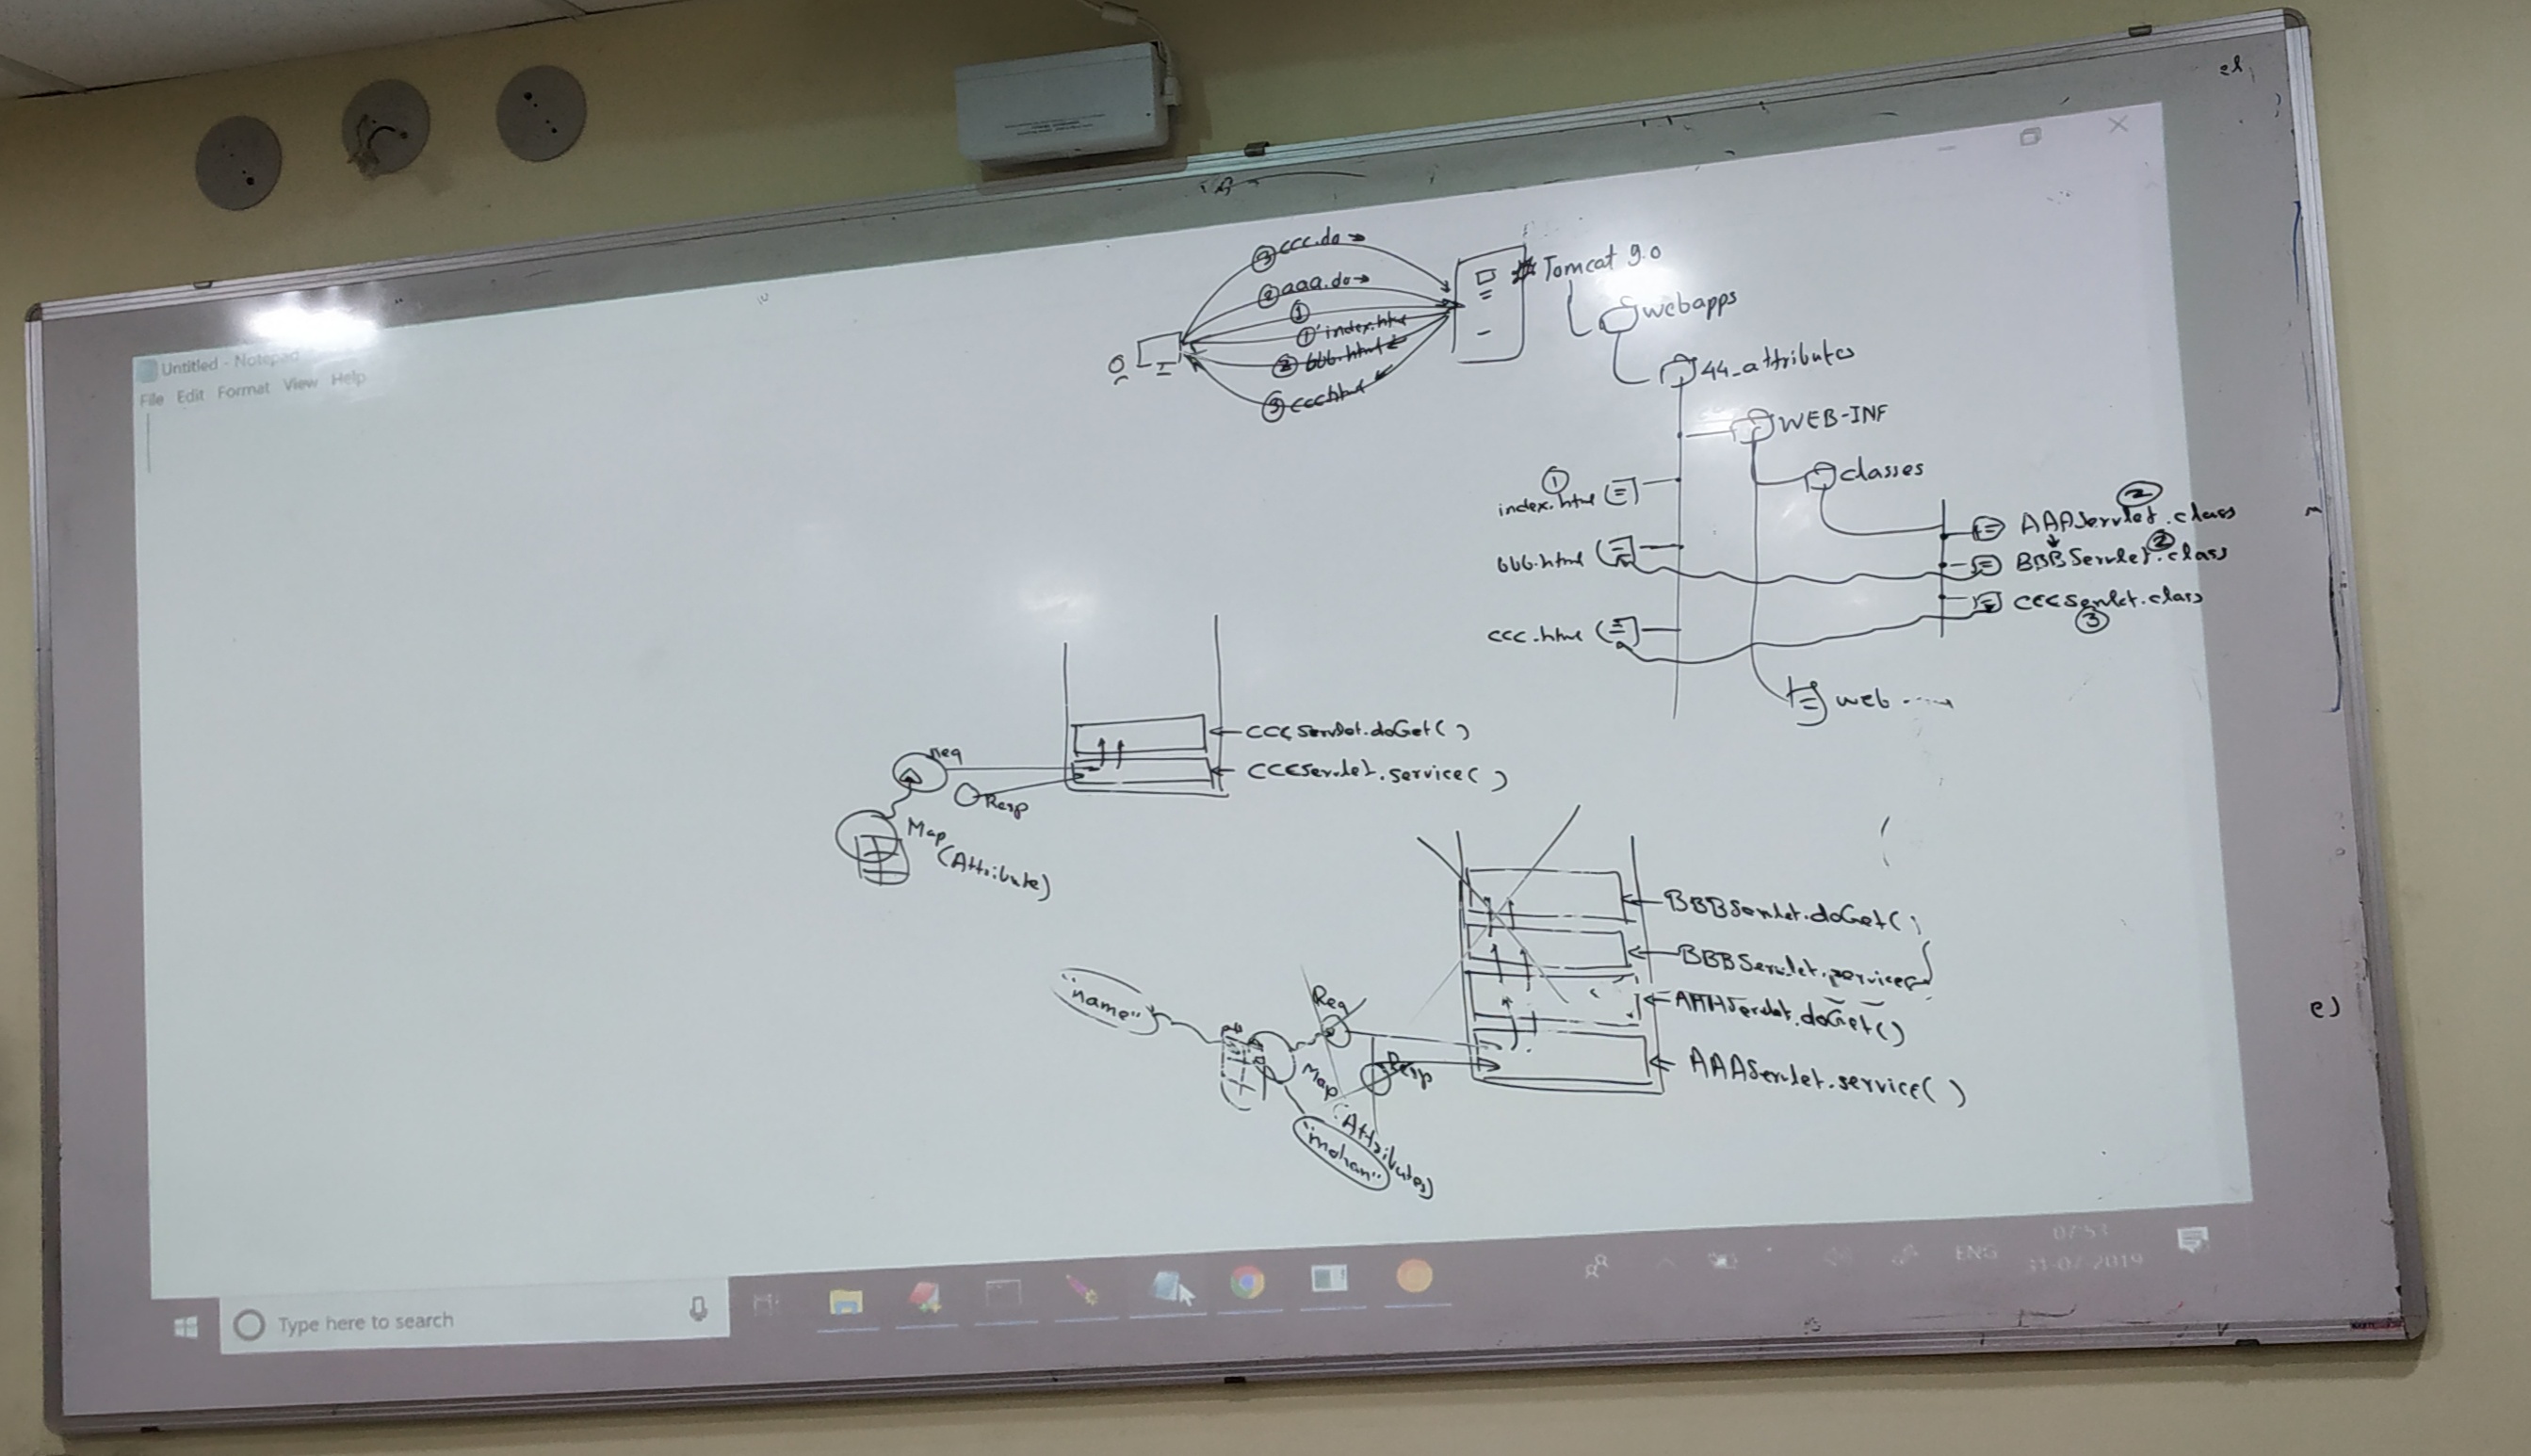 Untitled - Notepad
File Edit Format View Help
③ ccc.do →
② aaa.do →
①
①' index.html
② bbb.html
③ ccc.html
Tomcat 9.0
webapps
44_attributes
WEB-INF
classes
①
index.html
bbb.html
ccc.html
②
AAAServlet.class
②
BBBServlet.class
CCCServlet.class
③
web
CCCServlet.doGet()
CCCServlet.service()
Req
Resp
Map
(Attribute)
BBBServlet.doGet()
BBBServlet.service
AAAServlet.doGet()
AAAServlet.service()
"name"
Req
Resp
Map
(Attributes)
"mohan"
e)
Type here to search
ENG
07:53
31-07-2019